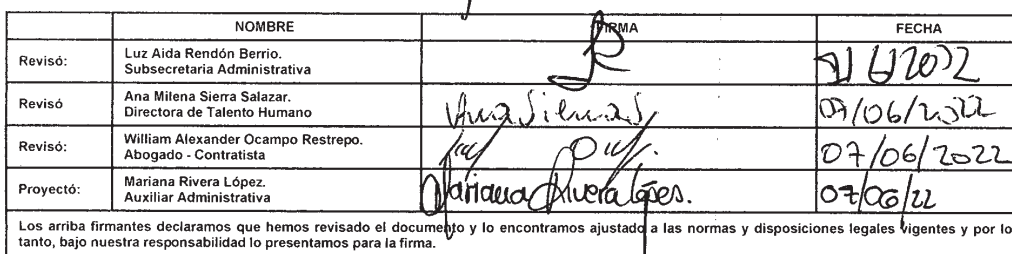 NOMBRE FIRMA FECHA
Revisó: Luz Aida Rendón Berrio.
Subsecretaria Administrativa
Revisó Ana Milena Sierra Salazar.
Directora de Talento Humano
Ana Sierra S. 07/06/2022
Revisó: William Alexander Ocampo Restrepo.
Abogado - Contratista
07/06/2022
Proyectó: Mariana Rivera López.
Auxiliar Administrativa
Mariana Rivera López. 07/06/22
Los arriba firmantes declaramos que hemos revisado el documento y lo encontramos ajustado a las normas y disposiciones legales vigentes y por lo
tanto, bajo nuestra responsabilidad lo presentamos para la firma.